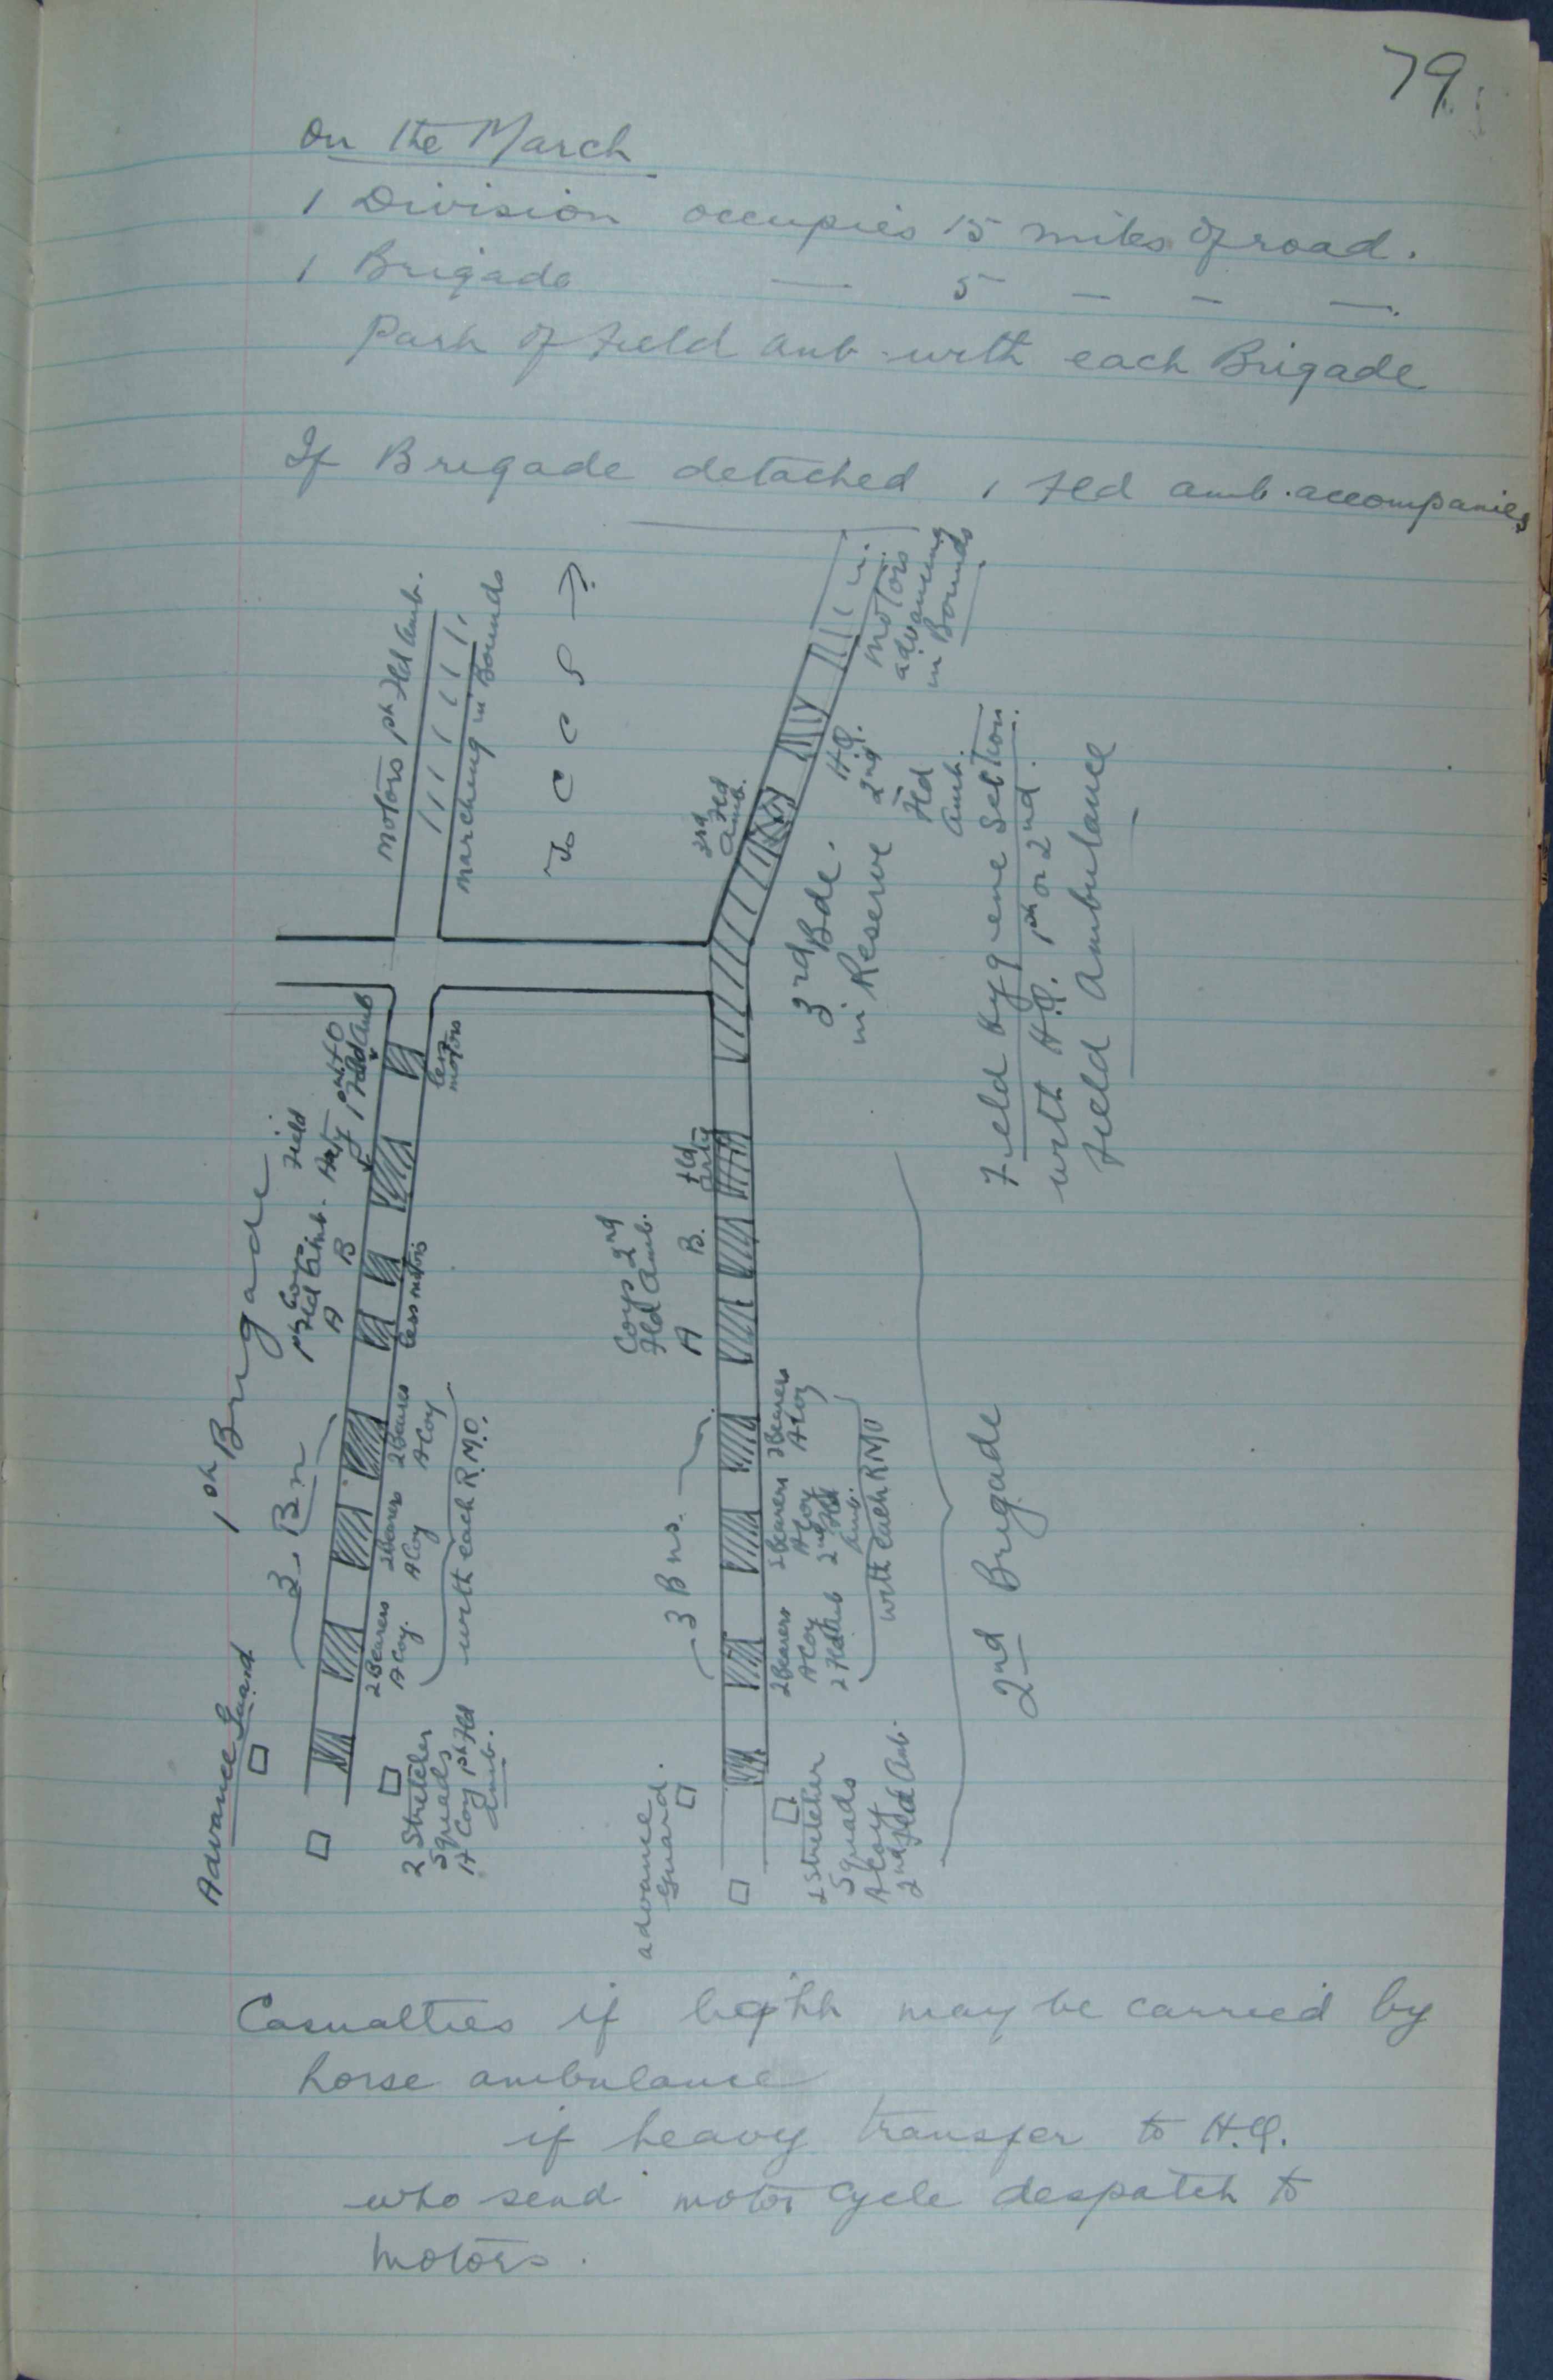 79
On the March
1 Division occupies 15 miles of road.
1 Brigade — 5 — — —.
Part of Field amb. with each Brigade
If Brigade detached 1 Fld amb. accompanies
Motors 1st Fld Amb.
marching in Bounds
To C C S →
Motors
advancing
in Bounds
3rd
Fld
Amb.
H.Q.
2nd
Fld
Amb.
3rd Bde.
in Reserve
Field Hygiene Section.
with H.Q. 1st or 2nd.
Field Ambulance
1st Brigade
Field
Arty
1st Fld Amb
less
motors
1st Fld Amb.
A B
less motors
3 Bn
2 Bearers
A Coy.
2 Bearers
A Coy
2 Bearers
A Coy
with each R.M.O.
Advance Guard
2 Stretcher
Squads
A Coy 1st Fld
Amb.
Fld
Arty
Coys 2nd
Fld Amb.
A B.
3 Bns.
2 Bearers
A Coy
2 Fld Amb
2 Bearers
A Coy
2nd Fld
Amb.
2 Bearers
A Coy
with each RMO
advance
Guard.
2 Stretcher
Squads
A Coy
2nd Fld Amb.
2nd Brigade
Casualties if light may be carried by
horse ambulance
if heavy transfer to H.Q.
who send motor cycle despatch to
motors.